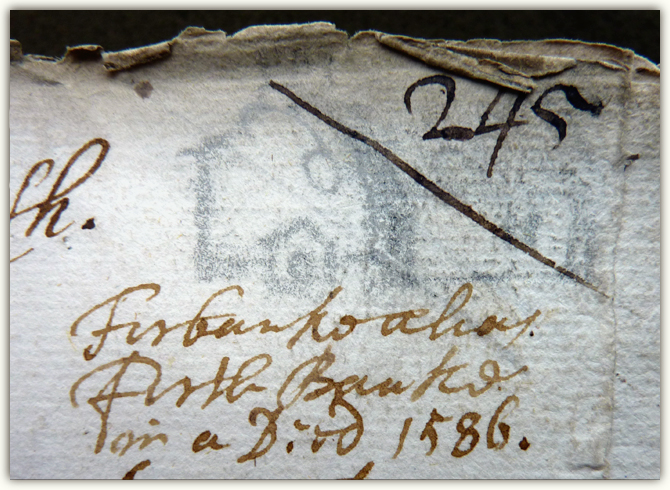 245
h.
Firbanks alias
Firth Banks
in a Deed 1586.